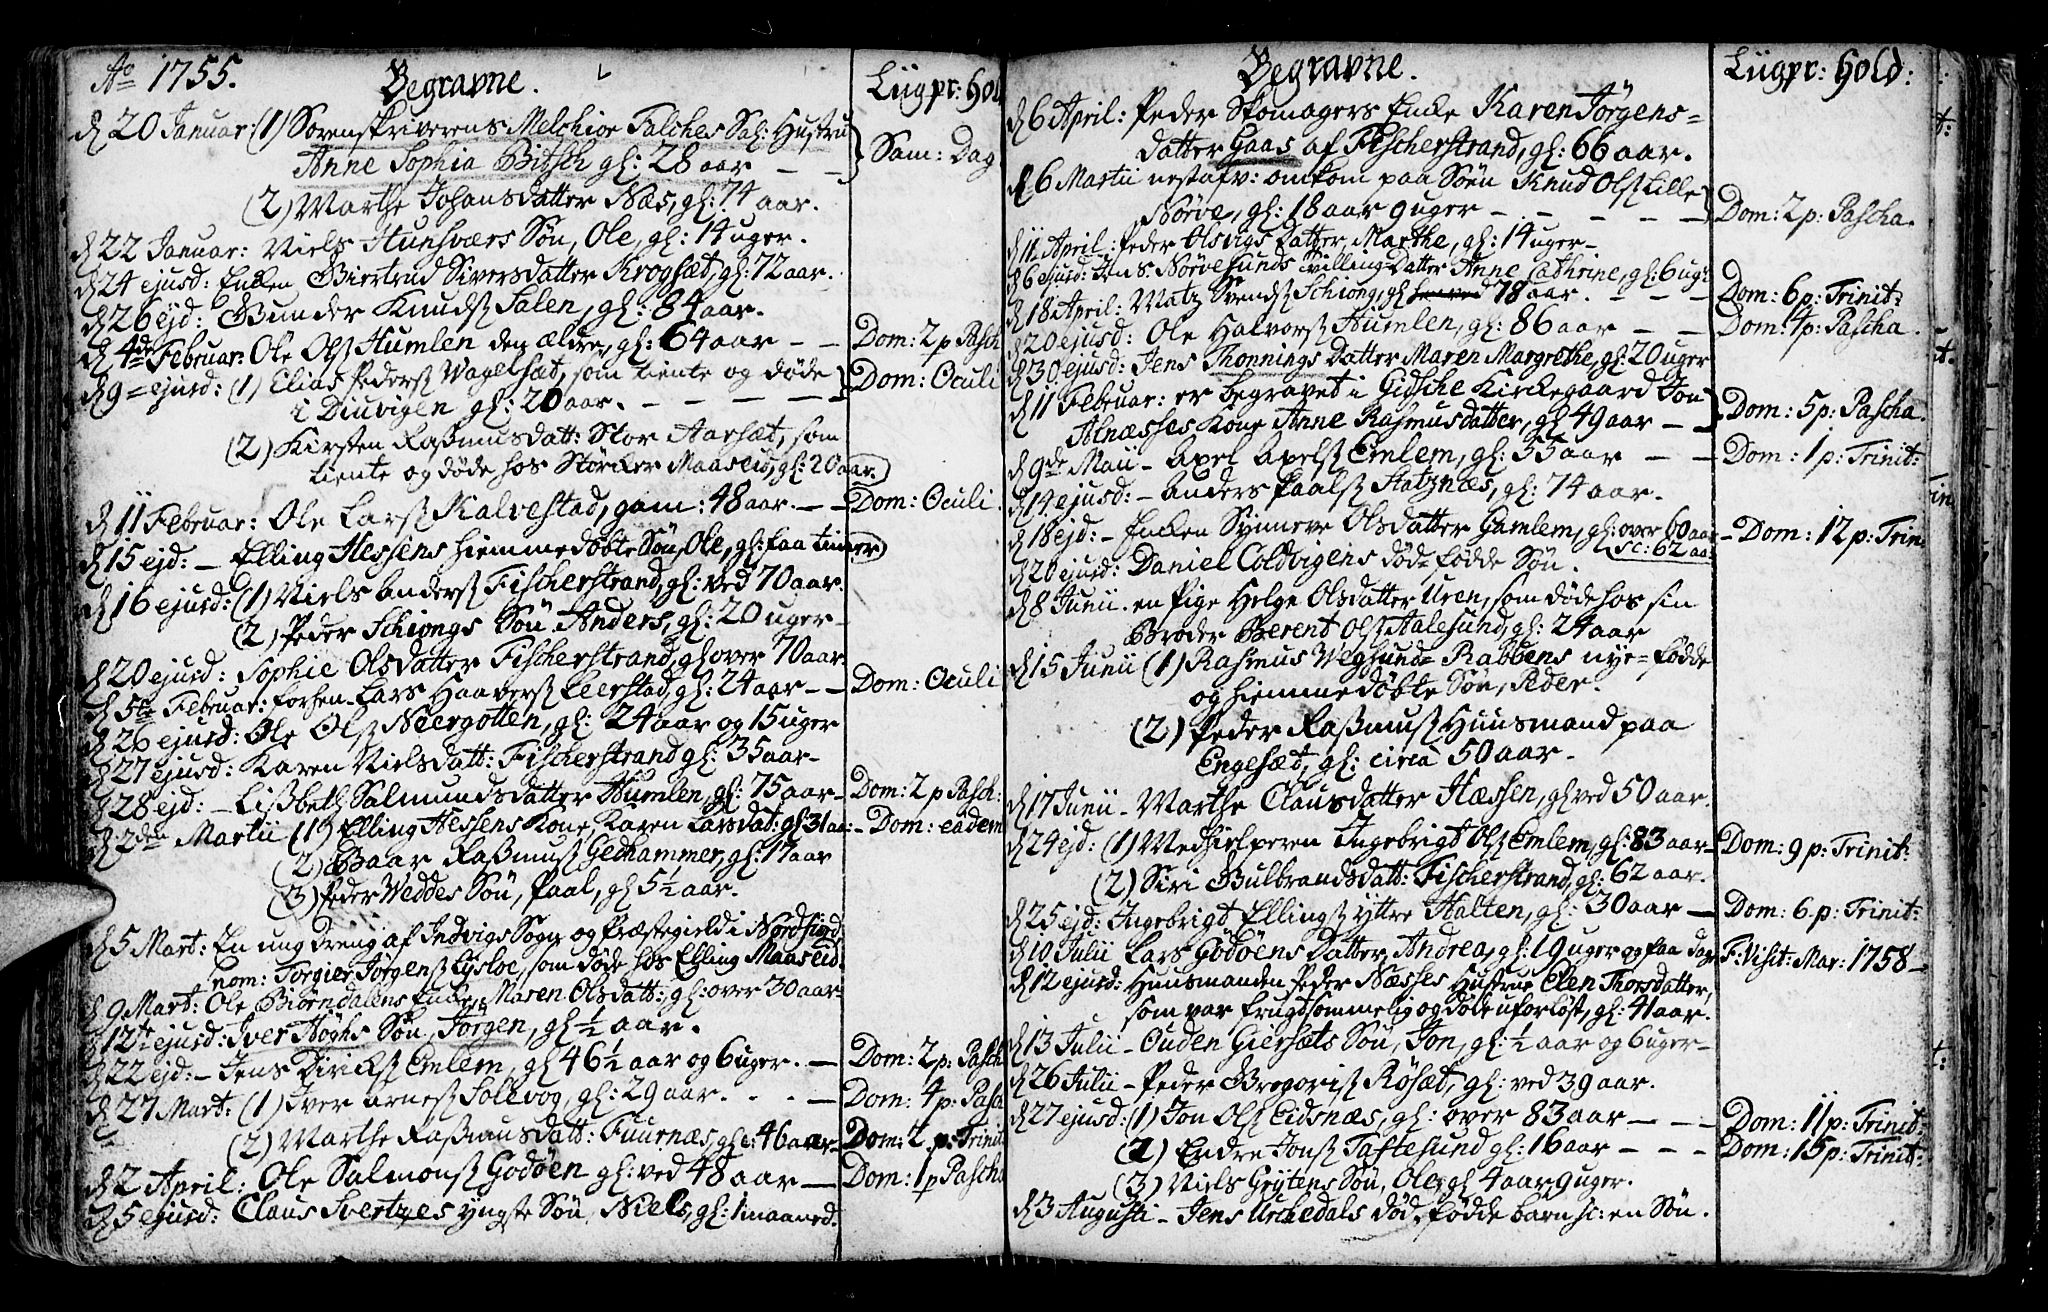 Ao 1755. Begravne. Liigpr: hold
d 20 Januar: (1) Sorenskriverens Melchior Falches Sal: Hustru
Anne Sophia Bitsch gl: 28 aar – – Sam: Dag
(2) Marthe Johansdatter Næs, gl: 74 aar.
d 22 Januar: Niels Hunsværs Søn, Ole, gl: 14 uger.
d 24 ejusd: Enken Giertrud Siversdatter Krogsæt, gl: 72 aar.
d 26 ejd: Gunder Knuds: Salen, gl: 84 aar.
d 4de Februar: Ole Ols: Humlen den ældre, gl: 64 aar – – Dom: 2 p Pasch
d 9 = ejusd: (1) Elias Peders: Wagelsæt, som tiente og døde
i Diuvigen gl: 20 aar. – – – – Dom: Oculi
(2) Kirsten Rasmusdatt: Stor Aarsæt, som
tiente og døde hos Størcker Maaseid, gl: 20 aar.
d 11 Februar: Ole Lars: Kalvestad, gam: 48 aar. – – Dom: Oculi.
d 15 ejd: – Elling Hessens hiemmedøbte Søn, Ole, gl: faa timer
d 16 ejusd: (1) Niels Anders: Fischerstrand, gl: ved 70 aar.
(2) Peder Schiongs Søn Anders, gl: 20 uger –
d 20 ejusd: Sophie Olsdatter Fischerstrand, gl over 70 aar.
d 5te Februar: forhen Lars Haavers: Leerstad, gl: 24 aar – – Dom: Oculi
d 26 ejusd: Ole Ols: Neergotten, gl: 24 aar og 15 uger
d 27 ejusd: Karen Nielsdatt: Fischerstrand gl: 35 aar –
d 28 ejd: – Lisbeth Salmundsdatter Humlen, gl: 75 aar – Dom: 2 p Pasch:
d 2den Martii (1) Elling Hessens Kone, Karen Larsdat: gl: 31 aar: – Dom: eadem
(2) Baar Rasmus: Gedhammer, gl: 17 aar
(3) Peder Weddes Søn, Paal, gl 5½ aar.
d 5 Mart: En ung dreng af Indvigs Sogn og Præstegield i Nordfiord
nom: Torgier Jørgens: Lysloe, som døde hos Elling Maaseid.
d 9 Mart: Ole Biørndalens Enke, Maren Olsdatt: gl: over 30 aar –
d 12te ejusd: Iver Høghs Søn, Jørgen, gl ½ aar.
d 22 ejd: – Jens Dirik: Emlem, gl 46½ aar og 6 uger. – Dom: 2 p: Pasch
d 27 Mart: (1) Iver Arnes: Solevog, gl: 29 aar. – Dom: 4 p: Pasch
(2) Marthe Rasmusdatt: Fuurnæs, gl: 46 aar – Dom: 2 p: Trinit
d 2 April: Ole Salmons: Godøen gl: ved 48 aar – Dom: 1 p Pascha
d 5 ejusd: Claus Svertzes yngste Søn, Niels, gl: 1 maaned.
Begravne. Liigpr: hold:
d 6 April: Peder Skomagers Enke Karen Jørgens=
datter Gaas af Fischerstrand, gl: 66 aar.
d 6 Martii nestafv: omkom paa Søen Knud Ols: Lille
Nørve, gl: 18 aar 9 uger – – – – – Dom: 2 p: Pascha.
d 11 April: Peder Alsvigs Datter, Marthe, gl: 14 uger –
d 6 ejusd: Jens Nørvesunds Tvilling Datter Anne Cathrine, gl: 6 ug: Dom: 6 p: Trinit:
d 18 April: Matz Svends: Schiong, gl 78 aar. – – –
d 20 ejusd: Ole Halvors: Humlen, gl: 86 aar – – Dom: 4 p: Pascha.
d 30 ejusd: Jens Thonnings Datter Maren Margrethe, gl: 20 uger
d 11 Februar: er begravet i Gidsche Kirkegaard Jon
Alnæsses Kone Anne Rasmusdatter, gl 49 aar – – Dom: 5 p: Pascha.
d 9de Maii – Axel Axels: Emlem, gl: 55 aar – – Dom: 1 p: Trinit:
d 14 ejusd: – Anders Paals: Statznæs, gl: 74 aar.
d 18 ejd: – Enken Synneve Olsdatter Gamlem, gl: over 60 aar – Dom: 12 p: Trin
sc: 62 aar
d 20 ejusd: Daniel Coldvigens død=fødde Søn.
d 8 Junii. en Pige Helge Olsdatter Uren, som døde hos sin
Broder Berent Ols: Aalesund, gl: 24 aar
d 15 Junii (1) Rasmus Vegsund=Rabbens nye=fødde
og hiemmedøbte Søn, Peder.
(2) Peder Rasmus: Huusmand paa
Engesæt, gl: circa 50 aar.
d 17 Junii – Marthe Clausdatter Hæssen, gl ved 50 aar.
d 24 ejd: (1) Medhielperen Ingebrigt Ols: Emlem, gl: 83 aar – Dom: 9 p: Trinit:
(2) Siri Gulbrandsdatt: Fischerstrand, gl: 62 aar.
d 25 ejd: Ingebrigt Ellings: yttre Halten, gl: 30 aar – Dom: 6 p: Trinit:
d 10 Julii Lars Godøens Datter, Andrea, gl: 19 uger og faa dage F: Visit: Mar: 1758 –
d 12 ejusd: Huusmanden Peder Næsses Hustrue Elen Thorsdatter,
som var frugtsommelig og døde uforløst, gl: 41 aar.
d 13 Julii – Ouden Giersæts Søn, Jon, gl: ½ aar og 6 uger –
d 26 Julii – Peder Gregoris: Røsæt, gl: ved 39 aar.
d 27 ejusd: (1) Jon Ols: Eidsnæs, gl: over 83 aar – – – Dom: 11 p: Trinit:
(2) Endre Jons: Taftesund gl: 16 aar – – – Dom: 15 p: Trinit:
(3) Niels Grytens Søn, Ole, gl 4 aar 9 uger.
d 3 Augusti – Jens Urkedals død-fødde barn sc: en Søn.